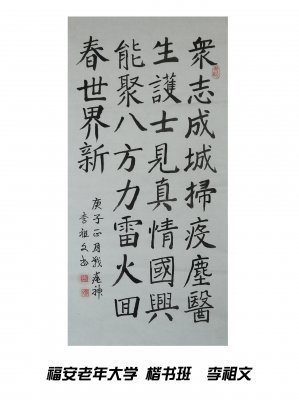 衆志成城掃疫塵醫
生護士見真情國興
能聚八方力雷火回
春世界新
庚子正月戰疫掃
李祖文书
福安老年大学 楷书班 李祖文